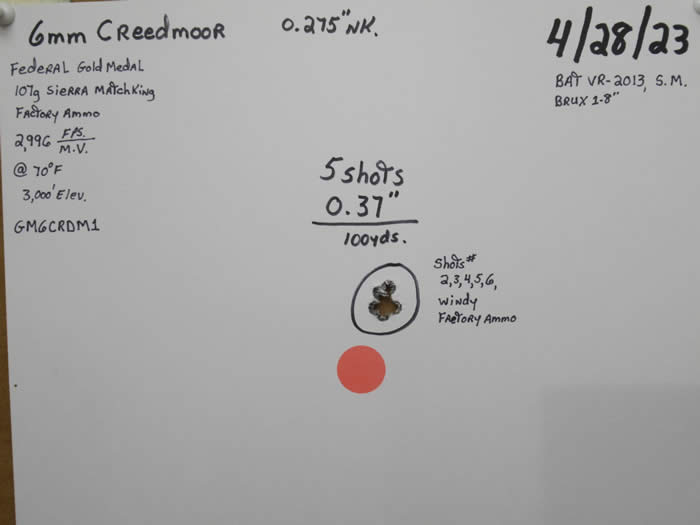 6mm CREEDMOOR
0.275" NK.
4/28/23
FEDERAL Gold MEDAL
107g SIERRA MATCHKING
FACTORY AMMO
2,996 FPS. / M.V.
@ 70°F
3,000' Elev.
GM6CRDM1
BAT VR-2013, S.M.
BRUX 1-8"
5 shots
0.37"
100yds.
Shots#
2,3,4,5,6,
WINDY
FACTORY AMMO